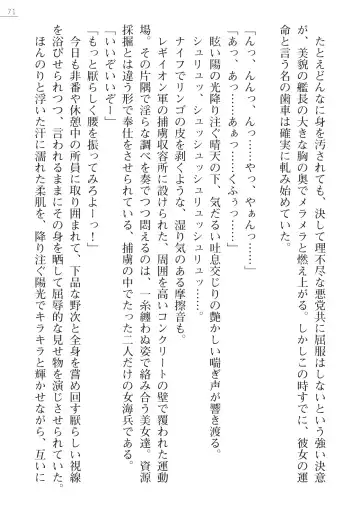 71
たとえどんなに身を汚されても、決して理不尽な悪党共に屈服はしないという強い決意
が、美貌の艦長の大きな胸の奥でメラメラと燃え上がる。しかしこの時すでに、彼女の運
命と言う名の歯車は確実に軋み始めていた。
「んっ、んんっ、んっ……やっ、やぁんっ……」
「あっ、あっ……あぁっ……くふぅっ……」
眩い陽の光降り注ぐ晴天の下、気だるい吐息交じりの艶かしい喘ぎ声が響き渡る。
シュリュッ、シュッシュッシュリュッシュリュッ……。
ナイフでリンゴの皮を剥くような、湿り気のある摩擦音も。
レギイオン軍の捕虜収容所に用意された、周囲を高いコンクリートの壁で覆われた運動
場。その片隅で淫らな調べを奏でつつ悶えるのは、一糸纏わぬ姿で絡み合う美女達。資源
採掘とは違う形で奉仕をさせられている、捕虜の中でたった二人だけの女海兵である。
「いいぞいいぞー」
「もっと厭らしく腰を振ってみろよーっ！」
今日も非番や休憩中の所員に取り囲まれて、下品な野次と全身を嘗め回す厭らしい視線
を浴びせられつつ、言われるままにその身を晒して屈辱的な見せ物を演じさせられていた。
ほんのりと浮いた汗に濡れた柔肌を、降り注ぐ陽光でキラキラと輝かせながら、互いに